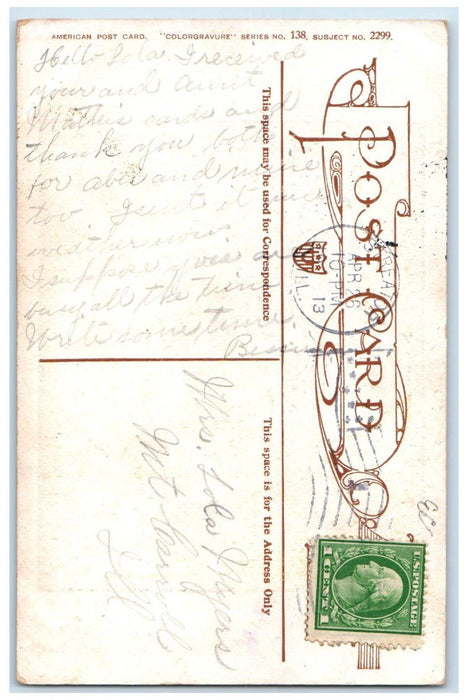 AMERICAN POST CARD. "COLORGRAVURE" SERIES NO. 138, SUBJECT NO. 2299.
Hello Lola. I received
your and aunt
Matties cards and
thank you both
for abies and mine
too. Isent it nice
weather now.
I suppose your
busy all the time
Write some time.
This space may be used for Correspondence
POST CARD
APR 26
10 PM
13
ILL.
This space is for the Address Only
Mrs. Lola Myers
Mt Carroll
Ill
U.S. POSTAGE
1 CENT 1